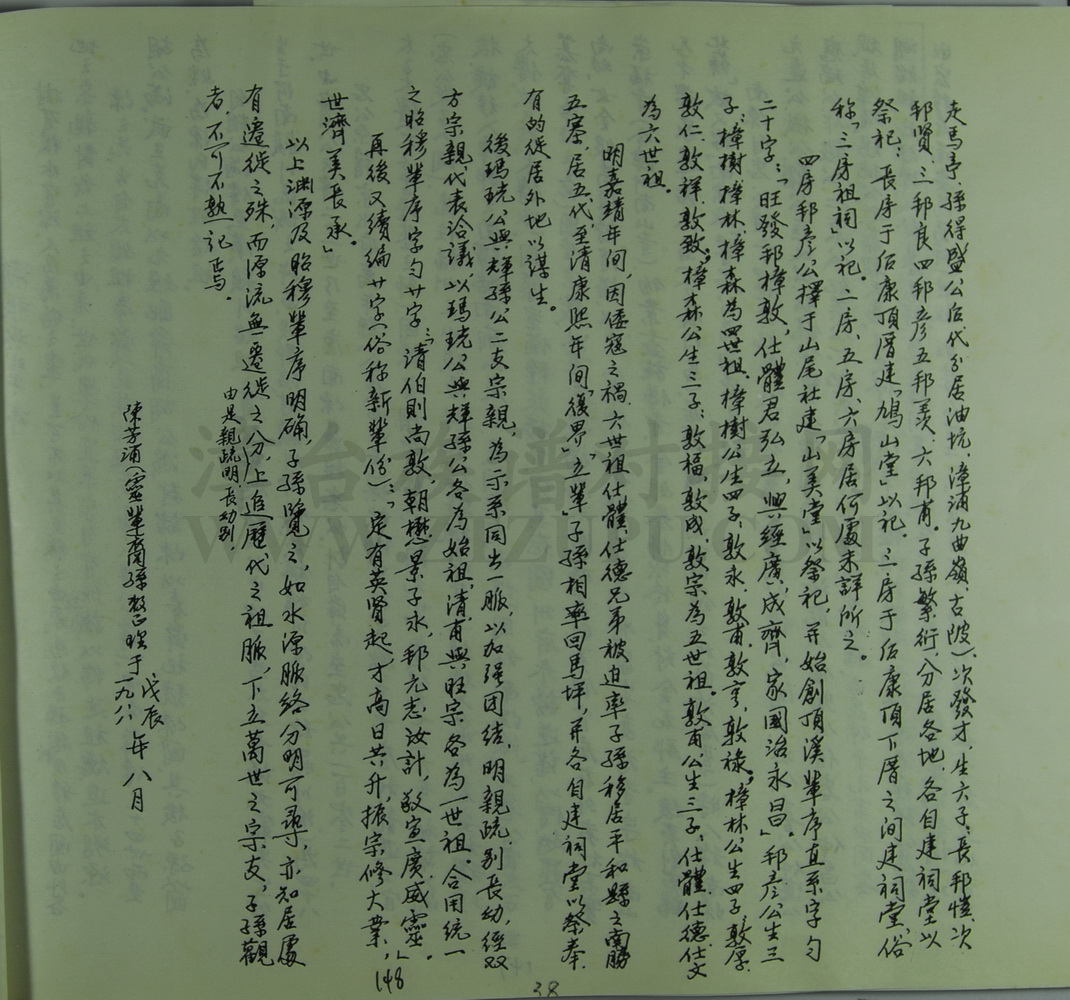 走馬亭。孫得盛公后代分居油坑、漳浦九曲嶺、古陂)、次發才,生六子:長邦愷、次
邦賢、三邦良、四邦彦、五邦美、六邦甫。子孫繁衍,分居各地,各自建祠堂以
祭祀:長房于后康頂厝建「鳩山堂」以祀。三房于后康頂下厝之間建祠堂,俗
称「三房祖祠」以祀。二房、五房、六房居何處未詳所之。
四房邦彦公擇于山尾社建「山美堂」以祭祀,并始創頂溪輩序直系字勻
二十字:「旺發邦樟敦,仕體君弘五,興經廣成齊,家國治永昌」。邦彦公生三
子:樟樹、樟林、樟森為四世祖。樟樹公生四子:敦永、敦甫、敦亨、敦祿。樟林公生四子:敦厚、
敦仁、敦祥、敦致。樟森公生三子:敦福、敦成、敦宗為五世祖。敦甫公生三子:仕體、仕德、仕文
為六世祖。
明嘉靖年間,因倭寇之禍,六世祖仕體、仕德兄弟被迫率子孫移居平和縣之南勝
五寨,居五代,至清康熙年間「復界」,「五輩」子孫相率回馬坪,并各自建祠堂以祭奉。
有的徙居外地以謀生。
後瑪珖公與輝孫公二支宗親,為示系同出一脈,以加强团结,明親疏,别長幼,經双
方宗親代表洽議,以瑪珖公與輝孫公各為始祖,清甫與旺宗各為一世祖。合用統一
之昭穆輩序字勻廿字:「清伯則尚敦,朝懋景子永,邦元志汝計,敬宣廣威靈」。
再後又續编廿字(俗称新輩份):「定有英賢起,才高日共升,振宗修大業,
世濟美長承。」
以上渊源及昭穆輩序明确,子孫覽之,如水源脈絡分明可尋,亦知居處
有遷徙之殊,而源流無遷徙之分,上追歷代之祖脈,下立萬世之宗支,子孫觀
者,不可不熟記焉。
由是親疏明,長幼别,
陳芳涌(靈輩裔孫)敬謄于戊辰一九八八年八月
148
38
WWW.ZIZUPU.COM